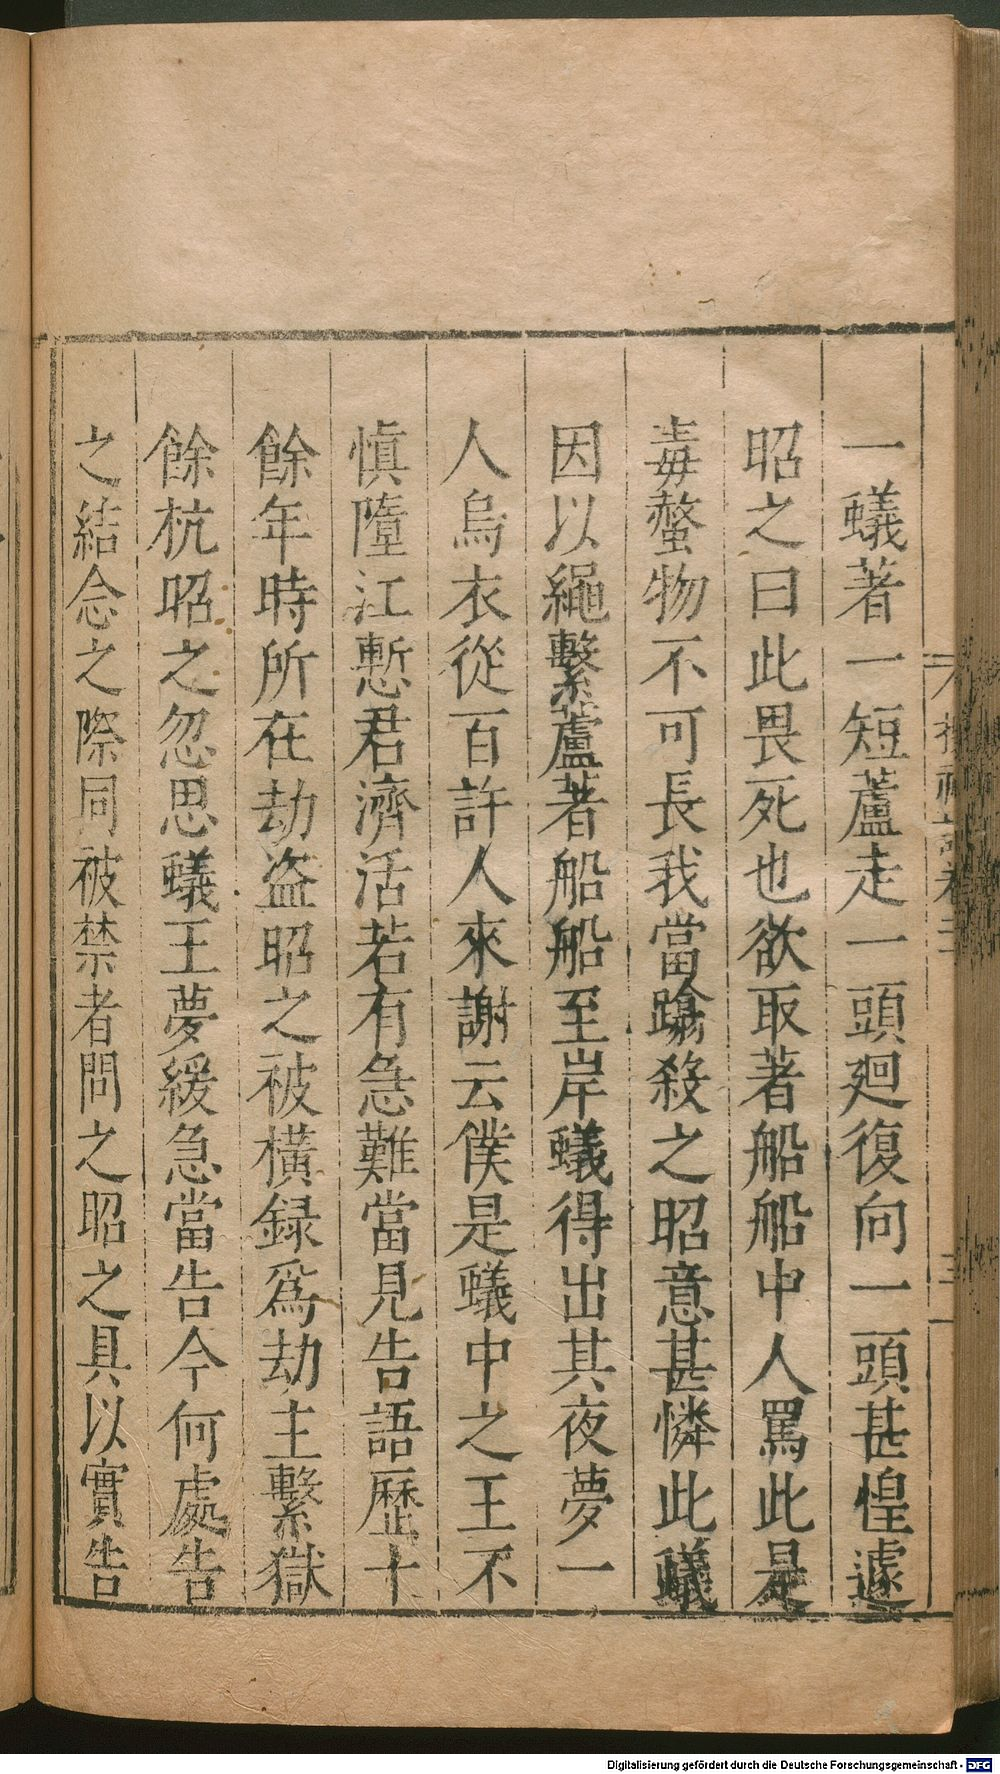 一蟻著一短蘆走一頭廻復向一頭甚惶遽
昭之曰此畏死也欲取著船船中人罵此是
毒螫物不可長我當蹹殺之昭意甚憐此蟻
因以繩繫蘆著船船至岸蟻得出其夜夢一
人烏衣從百許人來謝云僕是蟻中之王不
慎墮江慙君濟活若有急難當見告語歷十
餘年時所在劫盜昭之被橫録爲劫主繫獄
餘杭昭之忽思蟻王夢緩急當告今何處告
之結念之際同被禁者問之昭之具以實告
Digitalisierung gefördert durch die Deutsche Forschungsgemeinschaft - DFG